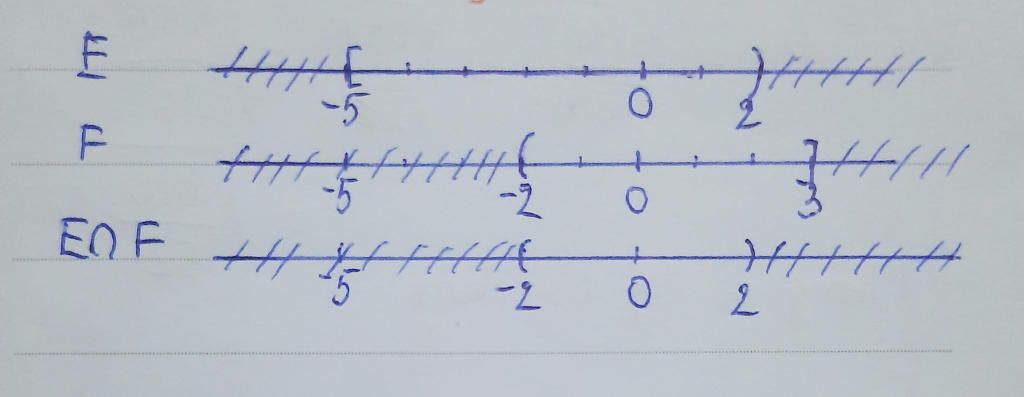 E [ )
-5 0 2
F ( ]
-5 -2 0 3
E∩F ( )
-5 -2 0 2